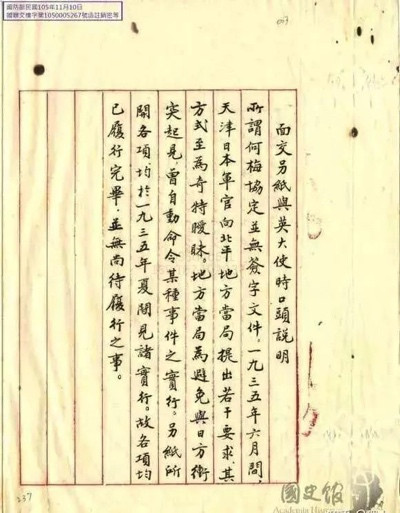 國防部民國105年11月10日
國贈文檔字第1050005267號函註銷密等
面交另紙與英大使時口頭說明
所謂何梅協定並無簽字文件，一九三五年六月間，
天津日本軍官向北平地方當局提出若干要求，其
方式至為奇特曖昧。地方當局為避免與日方衝
突起見，曾自動命令某種事件之實行。另紙所
開各項均於一九三五年夏間見諸實行。故各項均
已履行完畢，並無尚待履行之事。
237
國史館
Academia Historica